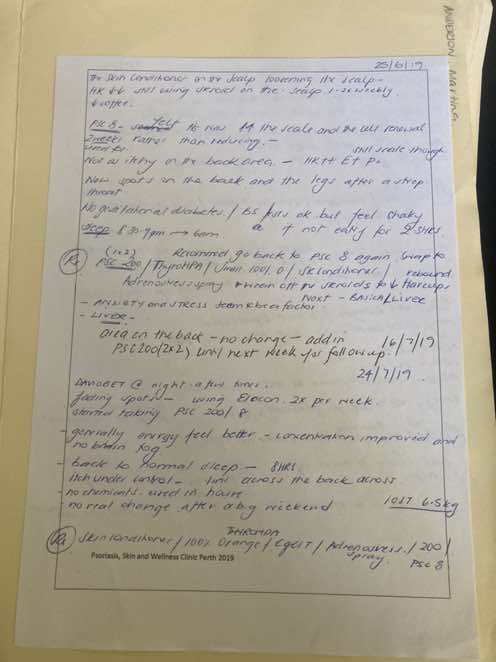 25/6/19
The Skin Conditioner on the scalp loosening the scalp -
still using steroid on the scalp 1-2x weekly.
↓ coffee.
PSC 8 - felt to now ↑ the scale and the cell renewal
2 weeks rather than reducing. -
still scale though
Not as itchy in the back area. - HK ++
New spots on the back and the legs after a strep
throat
No gestational diabetes / BS tests ok but feel shaky
if not eating for 2 SHRS.
Sleep 8.30-9pm → 6am.
(1x2) Recommend go back to PSC 8 again, wrap to
Rx PSC 200 / ThyroHPA / / O / SK Conditioner / rebound
Adrenostress spray wean off the steroids to ↓ flareups
Next - BASICA/Liver
- ANXIETY and STRESS seem to be a factor.
- LIVER -
area on the back - no change - add in 16/7/19
PSC 200 (2x2) until next week for follow up.
24/7/19.
DAIVOBET @ night - a few times.
fading spots - using Elocon. 2x per week.
started taking PSC 200/8.
- generally energy feel better - concentration improved and
no brain fog
- back to normal sleep - 8HRS.
Itch under control - line across the back across
- no chemicals used in house
- no real change after a big weekend
lost 6.5kg
Rx Skin conditioner / 100% Orange / / Adrenostress / 200 /
spray PSC 8
Psoriasis, Skin and Wellness Clinic Perth 2019